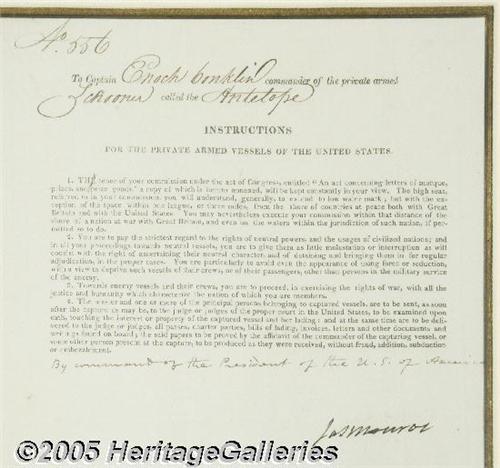 No. 556
To Captain Enoch Conklin commander of the private armed
Schooner called the Antelope
INSTRUCTIONS
FOR THE PRIVATE ARMED VESSELS OF THE UNITED STATES.
1. The tenor of your commission under the act of Congress, entitled "An act concerning letters of marque,
prizes, and prize goods," a copy of which is hereto annexed, will be kept constantly in your view. The high seas,
referred to in your commission, you will understand, generally, to extend to low water mark; but with the ex-
ception of the space within one league, or three miles, from the shore of countries at peace both with Great
Britain and with the United States. You may nevertheless execute your commission within that distance of the
shore of a nation at war with Great Britain, and even on the waters within the jurisdiction of such nation, if per-
mitted so to do.
2. You are to pay the strictest regard to the rights of neutral powers, and the usages of civilized nations; and
in all your proceedings towards neutral vessels, you are to give them as little molestation or interruption as will
consist with the right of ascertaining their neutral character, and of detaining and bringing them in for regular
adjudication, in the proper cases. You are particularly to avoid even the appearance of using force or seduction,
with a view to deprive such vessels of their crews, or of their passengers, other than persons in the military service
of the enemy.
3. Towards enemy vessels and their crews, you are to proceed, in exercising the rights of war, with all the
justice and humanity which characterize the nation of which you are members.
4. The master and one or more of the principal persons belonging to captured vessels, are to be sent, as soon
after the capture as may be, to the judge or judges of the proper court in the United States, to be examined upon
oath, touching the interest or property of the captured vessel and her lading; and at the same time are to be deli-
vered to the judge or judges, all passes, charter parties, bills of lading, invoices, letters and other documents and
writings found on board; the said papers to be proved by the affidavit of the commander of the capturing vessel, or
some other person present at the capture, to be produced as they were received, without fraud, addition, subduction
or embezzlement.
By command of the President of the U.S. of America
Jas Monroe
©2005 HeritageGalleries